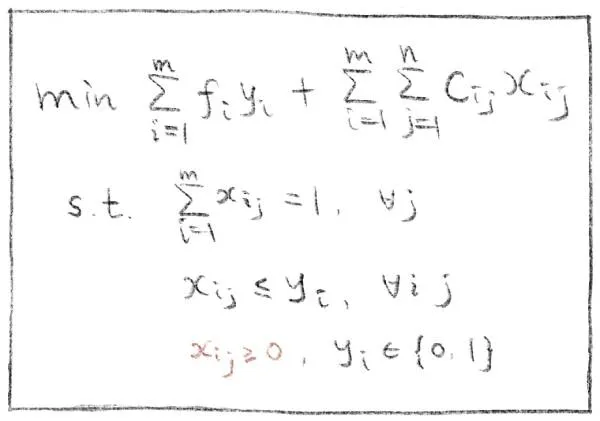 min \sum_{i=1}^{m} f_i y_i + \sum_{i=1}^{m} \sum_{j=1}^{n} C_{ij} x_{ij}
s.t. \sum_{i=1}^{m} x_{ij} = 1, ∀j
x_{ij} ≤ y_i, ∀i j
x_{ij} ≥ 0, y_i ∈ {0, 1}